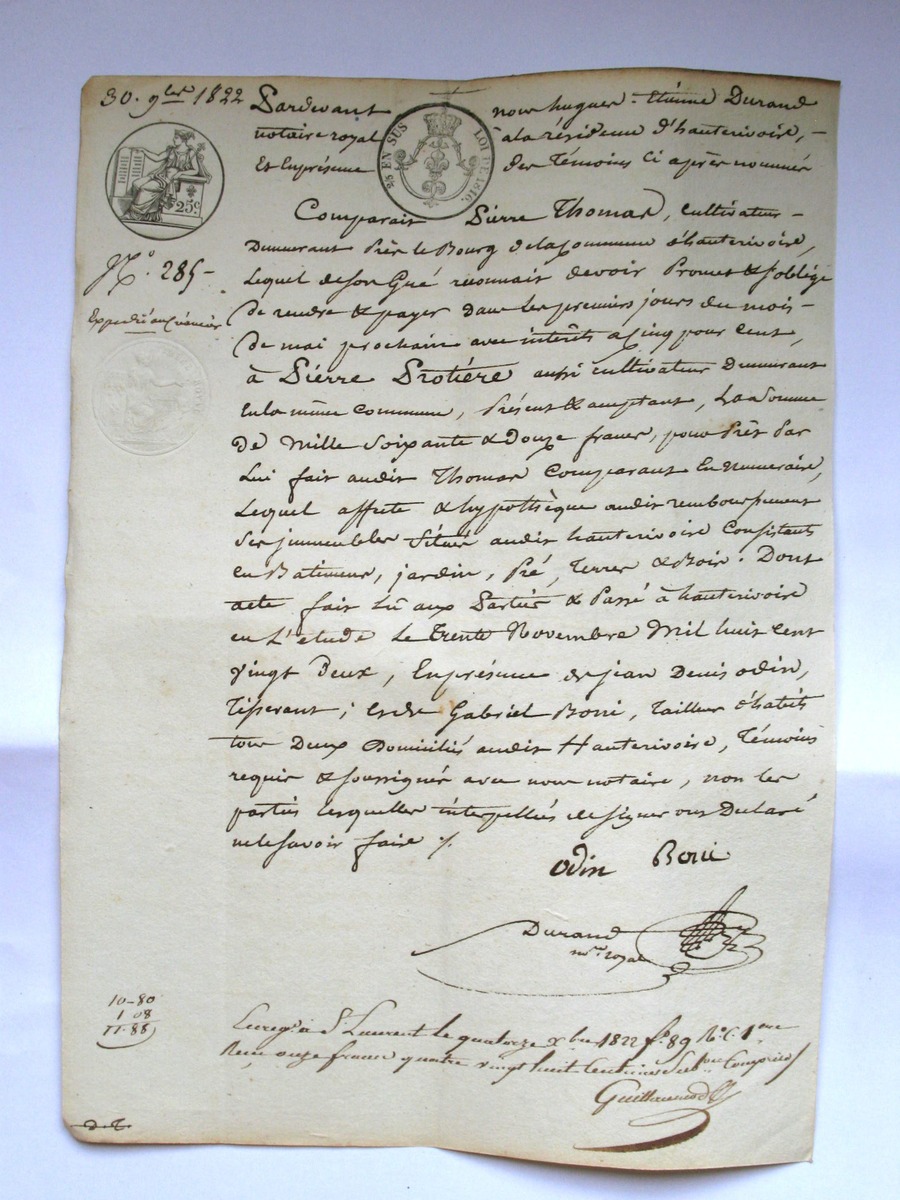 30. 9bre 1822
Pardevant nous hugues-Etienne Durand
notaire royal à la résidence d'hauterivoire,-
Et en présence des Témoins ci après nommés
25 EN SUS LOI DE 1816.
25c.
Comparait Pierre Thomas, cultivateur-
Demeurant Près le Bourg de la Commune d'hauterivoire,
Lequel de son Gré reconnait devoir Promet & s'oblige
No. 285-
De rendre & payer dans les premiers jours du mois-
Expédié au créancier
De mai prochain avec intérêts à Cinq pour Cent,
à Pierre Protière aussi cultivateur Demeurant
En la même Commune, Présent & acceptant, La Somme
De Mille Soixante & Douze francs, pour Prêt Par
Lui fait audit Thomas Comparant En Numeraire,
Lequel affecte & hypothèque audit remboursement
Ses immeubles Situés audit hauterivoire Consistants
En Batiments, jardin, Pré, Terres & Bois. Dont
acte fait Lû aux Parties & Passé à hauterivoire
en L'étude Le Trente Novembre Mil huit cent
vingt Deux, En présence de jean Denis odin,
Tisserant; et de Gabriel Boni, Tailleur d'habits
tous Deux Domiciliés audit Hauterivoire, Témoins
requis & soussignés avec nous notaire, non les
parties lesquelles interpellées de signer ont Déclaré
ne le savoir faire %.
odin Boni
Durand
nre. royal
10-80
1 08
11-88
Enregé. à St. Laurent le quatorze xbre 1822 fo. 89 Ro. C. 1ere
Reçu onze francs quatre vingt huit Centimes Subon. Compris